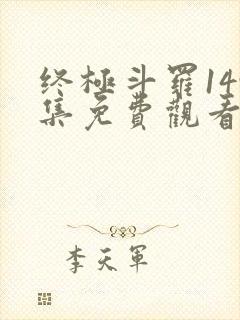 终極斗羅14
集免費觀看
李天軍